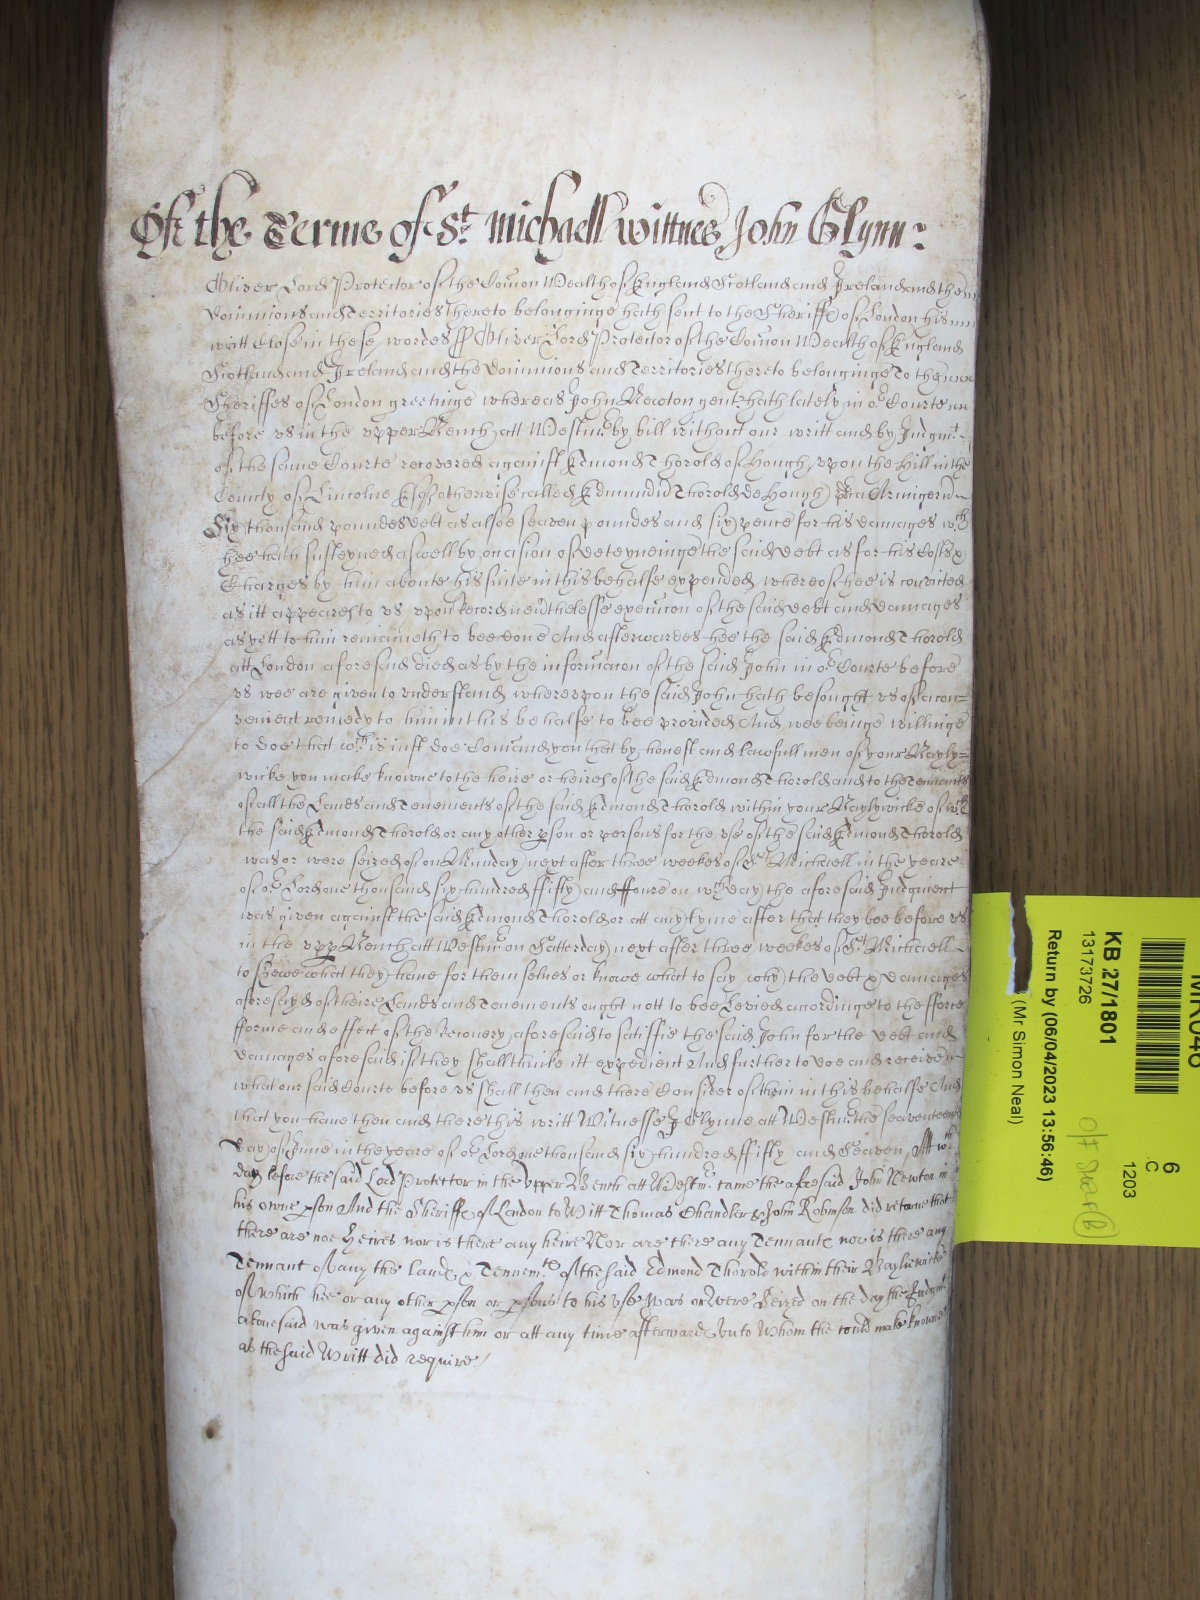 Of the Terme of St. Michaell Wittnes John Glynn:
Oliver Lord Protector of the Comon Wealth of England Scotland and Ireland and the
Dominions and Territories thereto belonginge hath sent to the Sheriffe of London his
writt Close in these wordes ss Oliver Lord Protector of the Comon Wealth of England
Scotland and Ireland and the Dominions and Territories thereto belonginge To the
Sheriffes of London greetinge whereas John Newton gent. hath lately in or Courte
before us in the upper Bench att Westmr. by bill without our writt and by Judgmt.
of the same Courte recovered against Edmond Thorold of Hough upon the Hill in the
County of Lincolne Esq otherwise called Edmund Thorold de Hough Armigerū
Six thousand poundes debt as alsoe seaven poundes and six pence for his damages wch
hee hath susteyned aswell by occasion of deteyneinge the said debt as for his Costs &
Charges by him aboute his suite in this behalfe expended whereof hee is convicted
as itt appeareth to us upon Record nevrthelesse execucon of the said debt and damages
as yett to him remaineth to bee done And afterwardes hee the said Edmond Thorold
att London aforesaid died as by the informacon of the said John in or Courte before
us wee are given to understand whereupon the said John hath besought us of a con=
venient remedy to him in this behalfe to bee provided And wee beinge willinge
to doe that wch is iust doe Comand you that by honest and lawfull men of your Bayly=
wicke you make knowne to the heire or heires of the said Edmond Thorold and to the Tennants
of all the Lands and Tenements of the said Edmond Thorold within your Baylywicke of wch
the said Edmond Thorold or any other pson or persons for the use of the said Edmond Thorold
was or were seized of on Munday next after three weekes of St. Michaell in the yeare
of or Lord one thousand six hundred ffifty and ffoure on wch day the aforesaid Judgment
was given against the said Edmond Thorold or att any tyme after that they bee before us
in the uppr Bench att Westmr. on Satterday next after three weekes of St. Michaell
to shewe what they have for them selves or knowe what to say why the debt & damages
aforesayd of theire Lands and Tenements ought nott to bee Levied accordinge to the fforce
fforme and effect of the Recovery aforesaid to satisfie the said John for the debt and
damages aforesaid if they shall thinke itt expedient And further to doe and receive
what our said Courte before us shall then and there Consider of them in this behalfe And
that you have then and there this writt Witnesse J Glynne att Westmr. the seaventeenth
day of June in the yeare of or Lord one thousand six hundred ffifty and Seaven, Att wch
day before the said Lord Protector in the upper Bench att Westmr. came the aforesaid John Newton in
his owne pson And the Sheriffe of London to Witt Thomas Chandler & John Robinson did retorne that
there are noe heires nor is there any heire Nor are there any Tennants nor is there any
Tennant of any the lands & Tennemts of the said Edmond Thorold within their Bayliewicke
of which hee or any other pson or psons to his use was or were Seized on the day the Judgmt.
abovesaid was given against him or att any time afterwards unto whom the could make knowne
as the said Writt did require /
MR046
KB 27/1801
13173726
Return by (06/04/2023 13:56:46)
(Mr Simon Neal)
6
C
1203